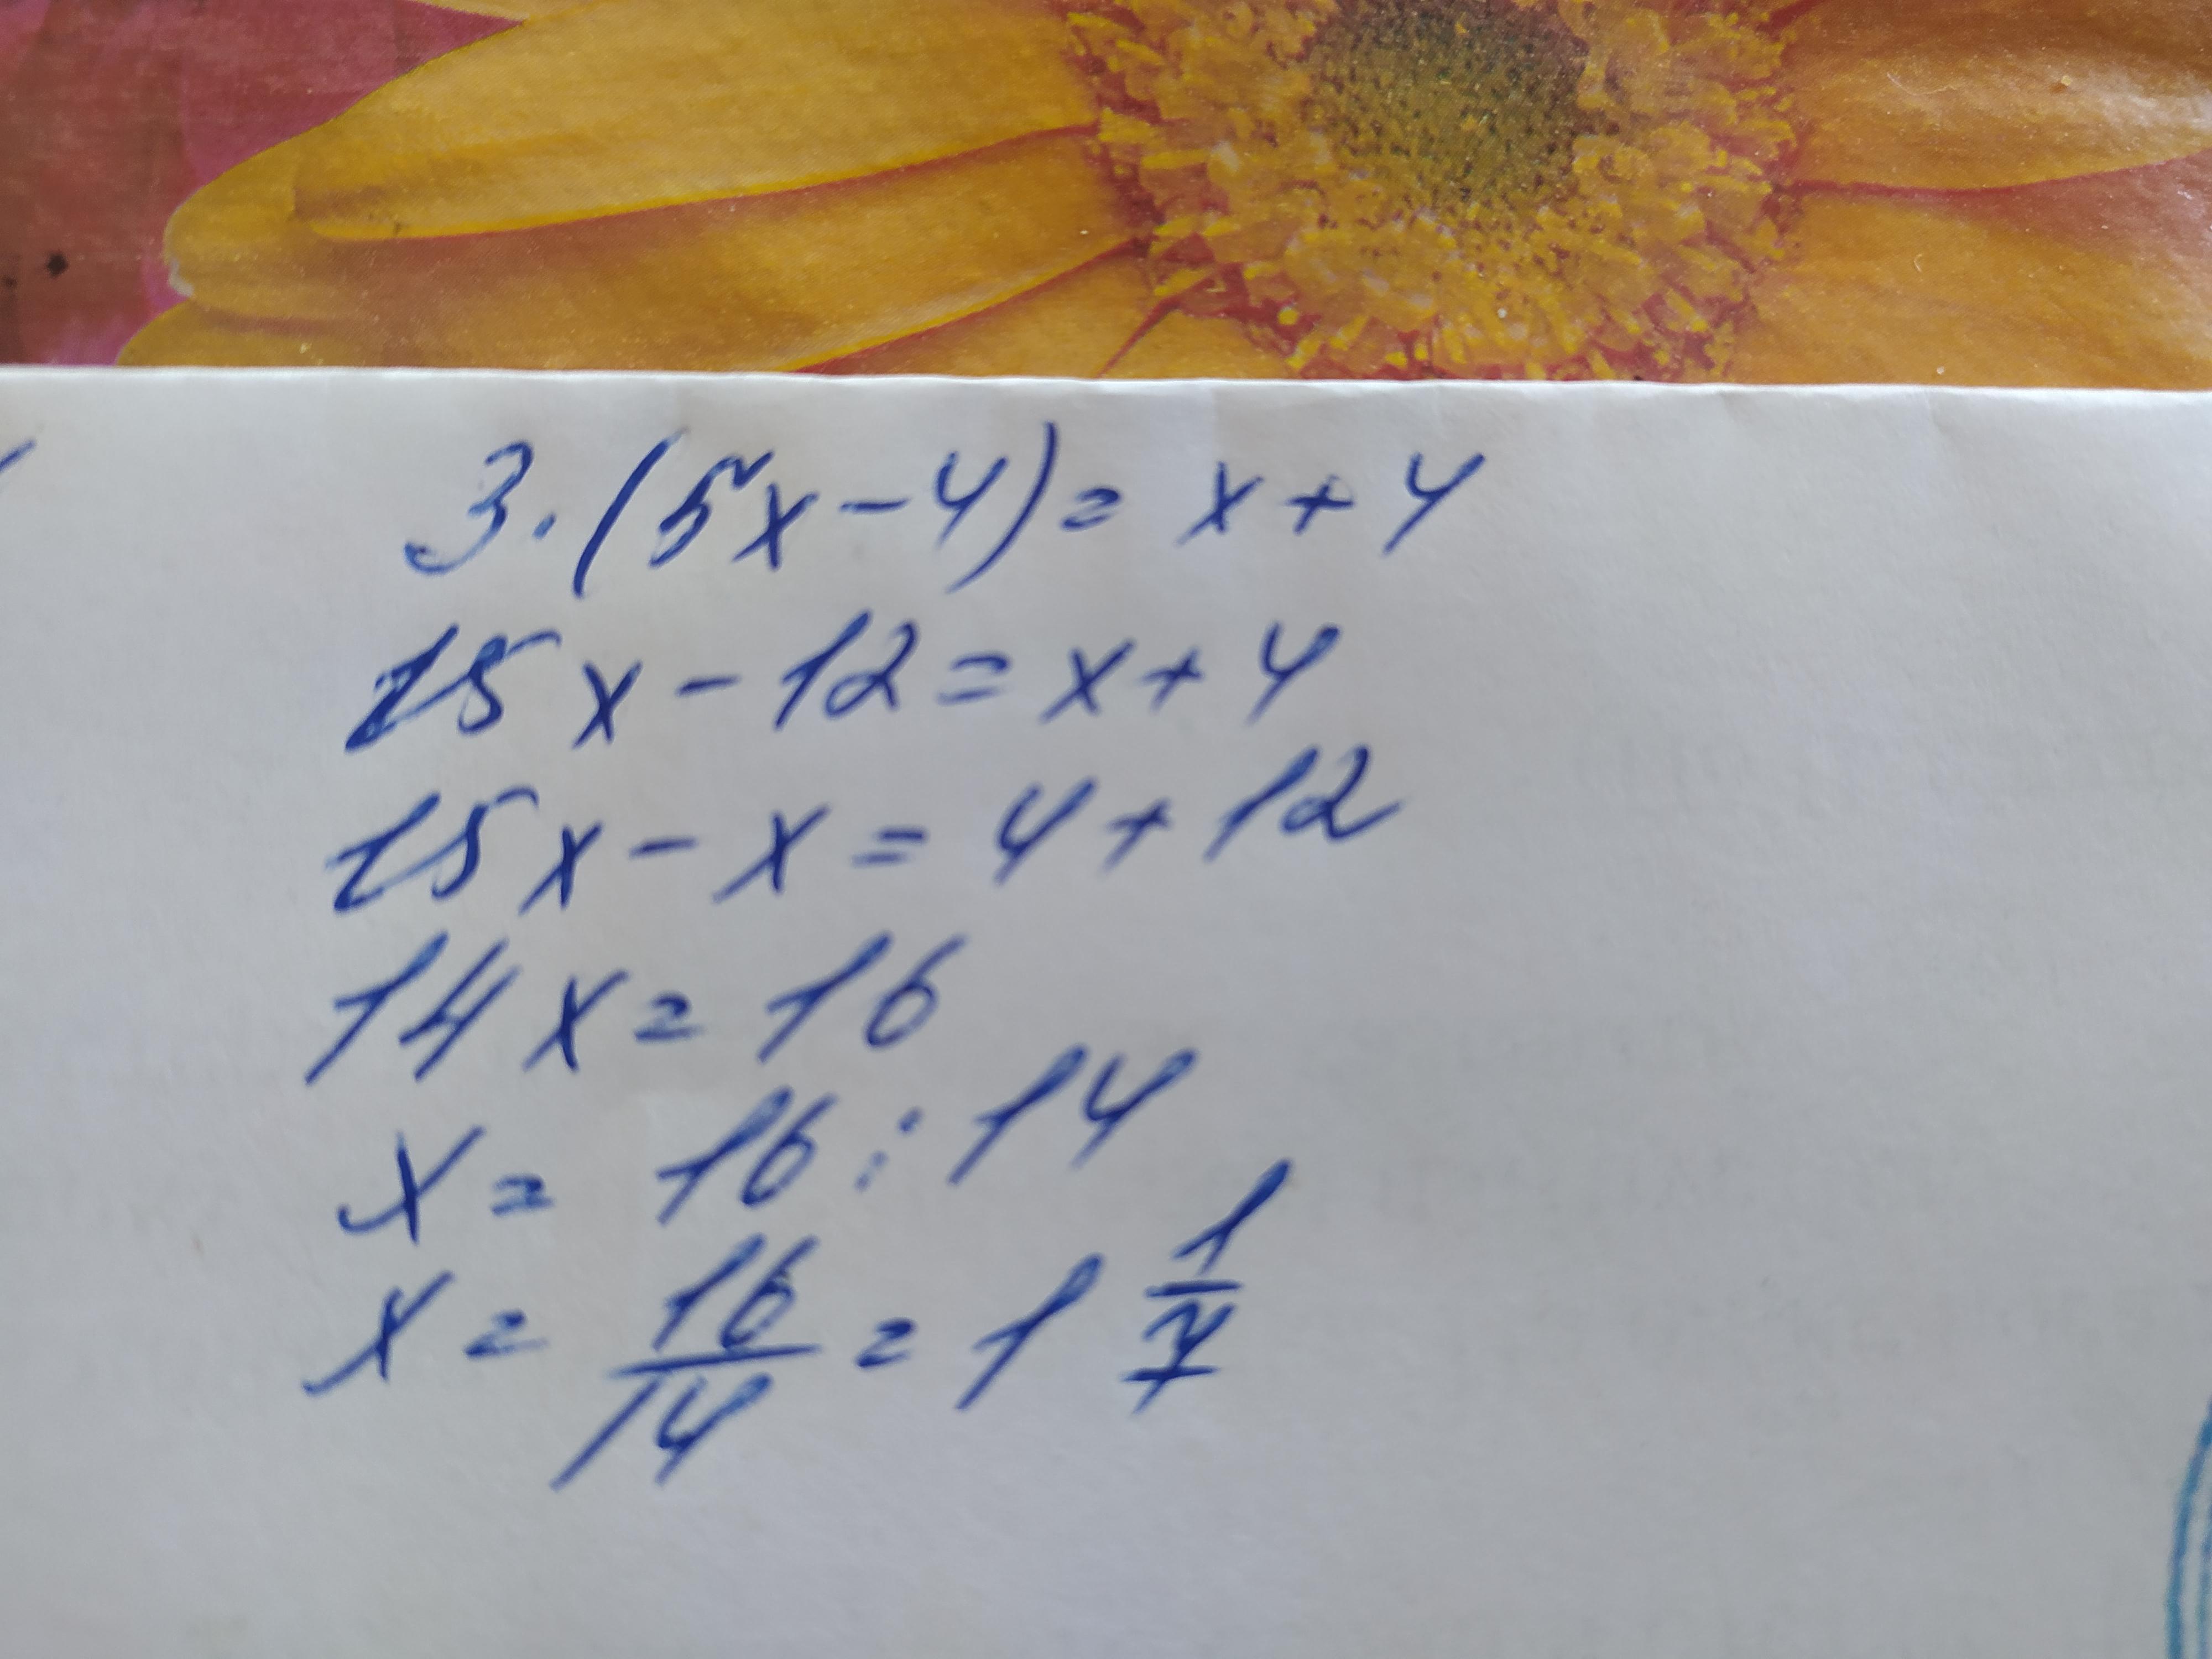 3·(5x-4)=x+4
15x-12=x+4
15x-x=4+12
14x=16
x=16:14
x=16/14=1 1/7